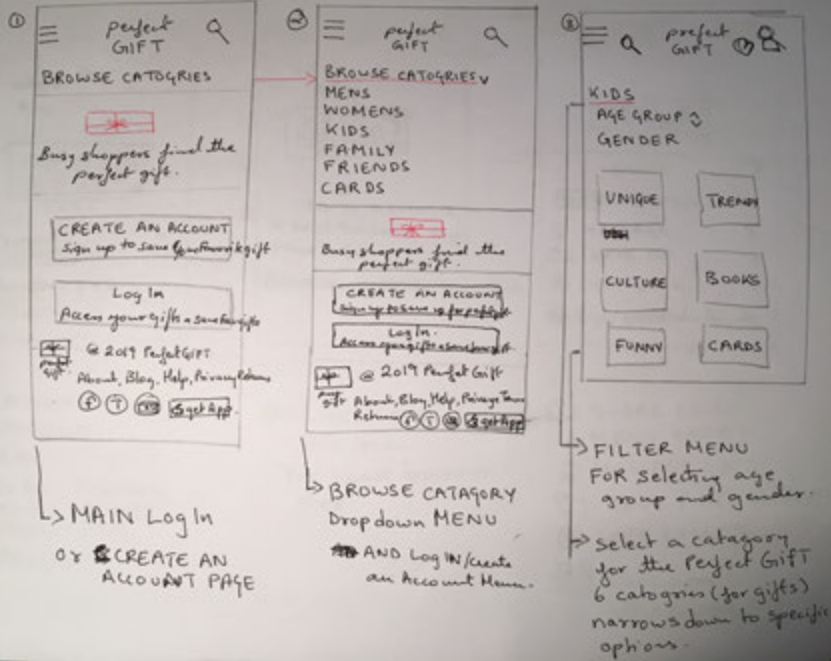 1
perfect
GIFT
BROWSE CATOGRIES
Busy shoppers find the
perfect gift.
CREATE AN ACCOUNT
Sign up to save
Log In
Access your Gifts
@ 2019 Perfect GIFT
About, Blog, Help, Privacy Returns
f T get App
MAIN Log In
or CREATE AN
ACCOUNT PAGE
2
perfect
GIFT
BROWSE CATOGRIES
MENS
WOMENS
KIDS
FAMILY
FRIENDS
CARDS
Busy shoppers find the
perfect gift.
CREATE AN ACCOUNT
Sign up to save
Log In.
@ 2019 Perfect Gift
About, Blog, Help, Privacy
Returns f T get App
BROWSE CATAGORY
Dropdown MENU
AND Log IN/create
an Account Menu.
3
prefect
GIFT
KIDS
AGE GROUP
GENDER
UNIQUE TRENDY
CULTURE BOOKS
FUNNY CARDS
FILTER MENU
FOR Selecting age
group and gender.
Select a catagory
for the Perfect GIFT
6 catogries (for gifts)
narrows down to specific
options.